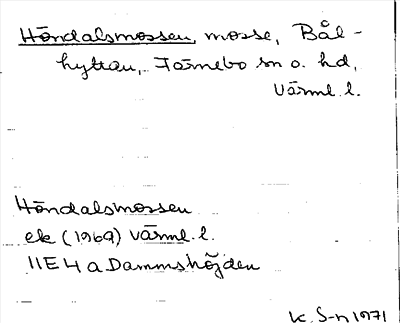 Höndalsmossen, mosse, Bål-
hyttan, Färnebo sn o. hd,
Värml. l.
Höndalsmossen
ek (1969) Värml. l.
11E 4 a Dammshöjden
K. S-n 1971